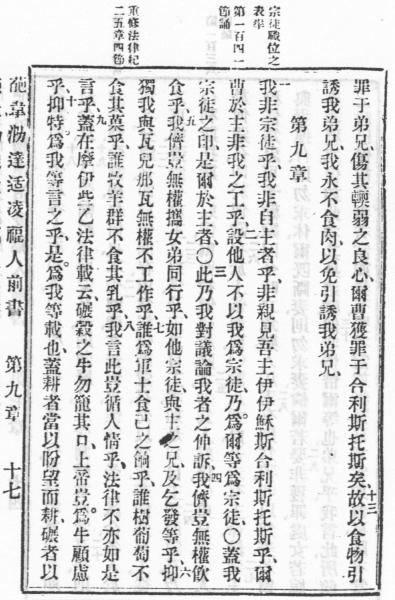 宗徒職位之
表率
第一百四一
節誦
重修法律紀
二五章四節
罪于弟兄、傷其輭弱之良心、爾曹獲罪于合利斯托斯矣、十三故以食物引
誘我弟兄、我永不食肉、以免引誘我弟兄、
第九章
一我非宗徒乎、我非自主者乎、非親見吾主伊伊穌斯合利斯托斯乎、爾
曹於主非我之工乎、二設他人不以我爲宗徒、乃爲爾等爲宗徒、○蓋我
宗徒之印、是爾於主者、○三此乃我對議論我者之仲訴、四我儕豈無權飲
食乎、五我儕豈無權攜女弟同行乎、如他宗徒、與主之兄、及乞發等乎、六抑
獨我與瓦兒那瓦無權不工作乎、七誰爲軍士食己之餉乎、誰樹葡萄不
食其菓乎、誰牧羊群不食其乳乎、八我言此豈循人情乎、法律不亦如是
言乎、九蓋在摩伊些乙法律載云、碾穀之牛勿籠其口、上帝豈爲牛顧慮
乎、十抑特爲我等言之乎、是爲我等載也、蓋耕者當以盼望而耕、碾者以
葩韋勒達适凌人前書 第九章 十七